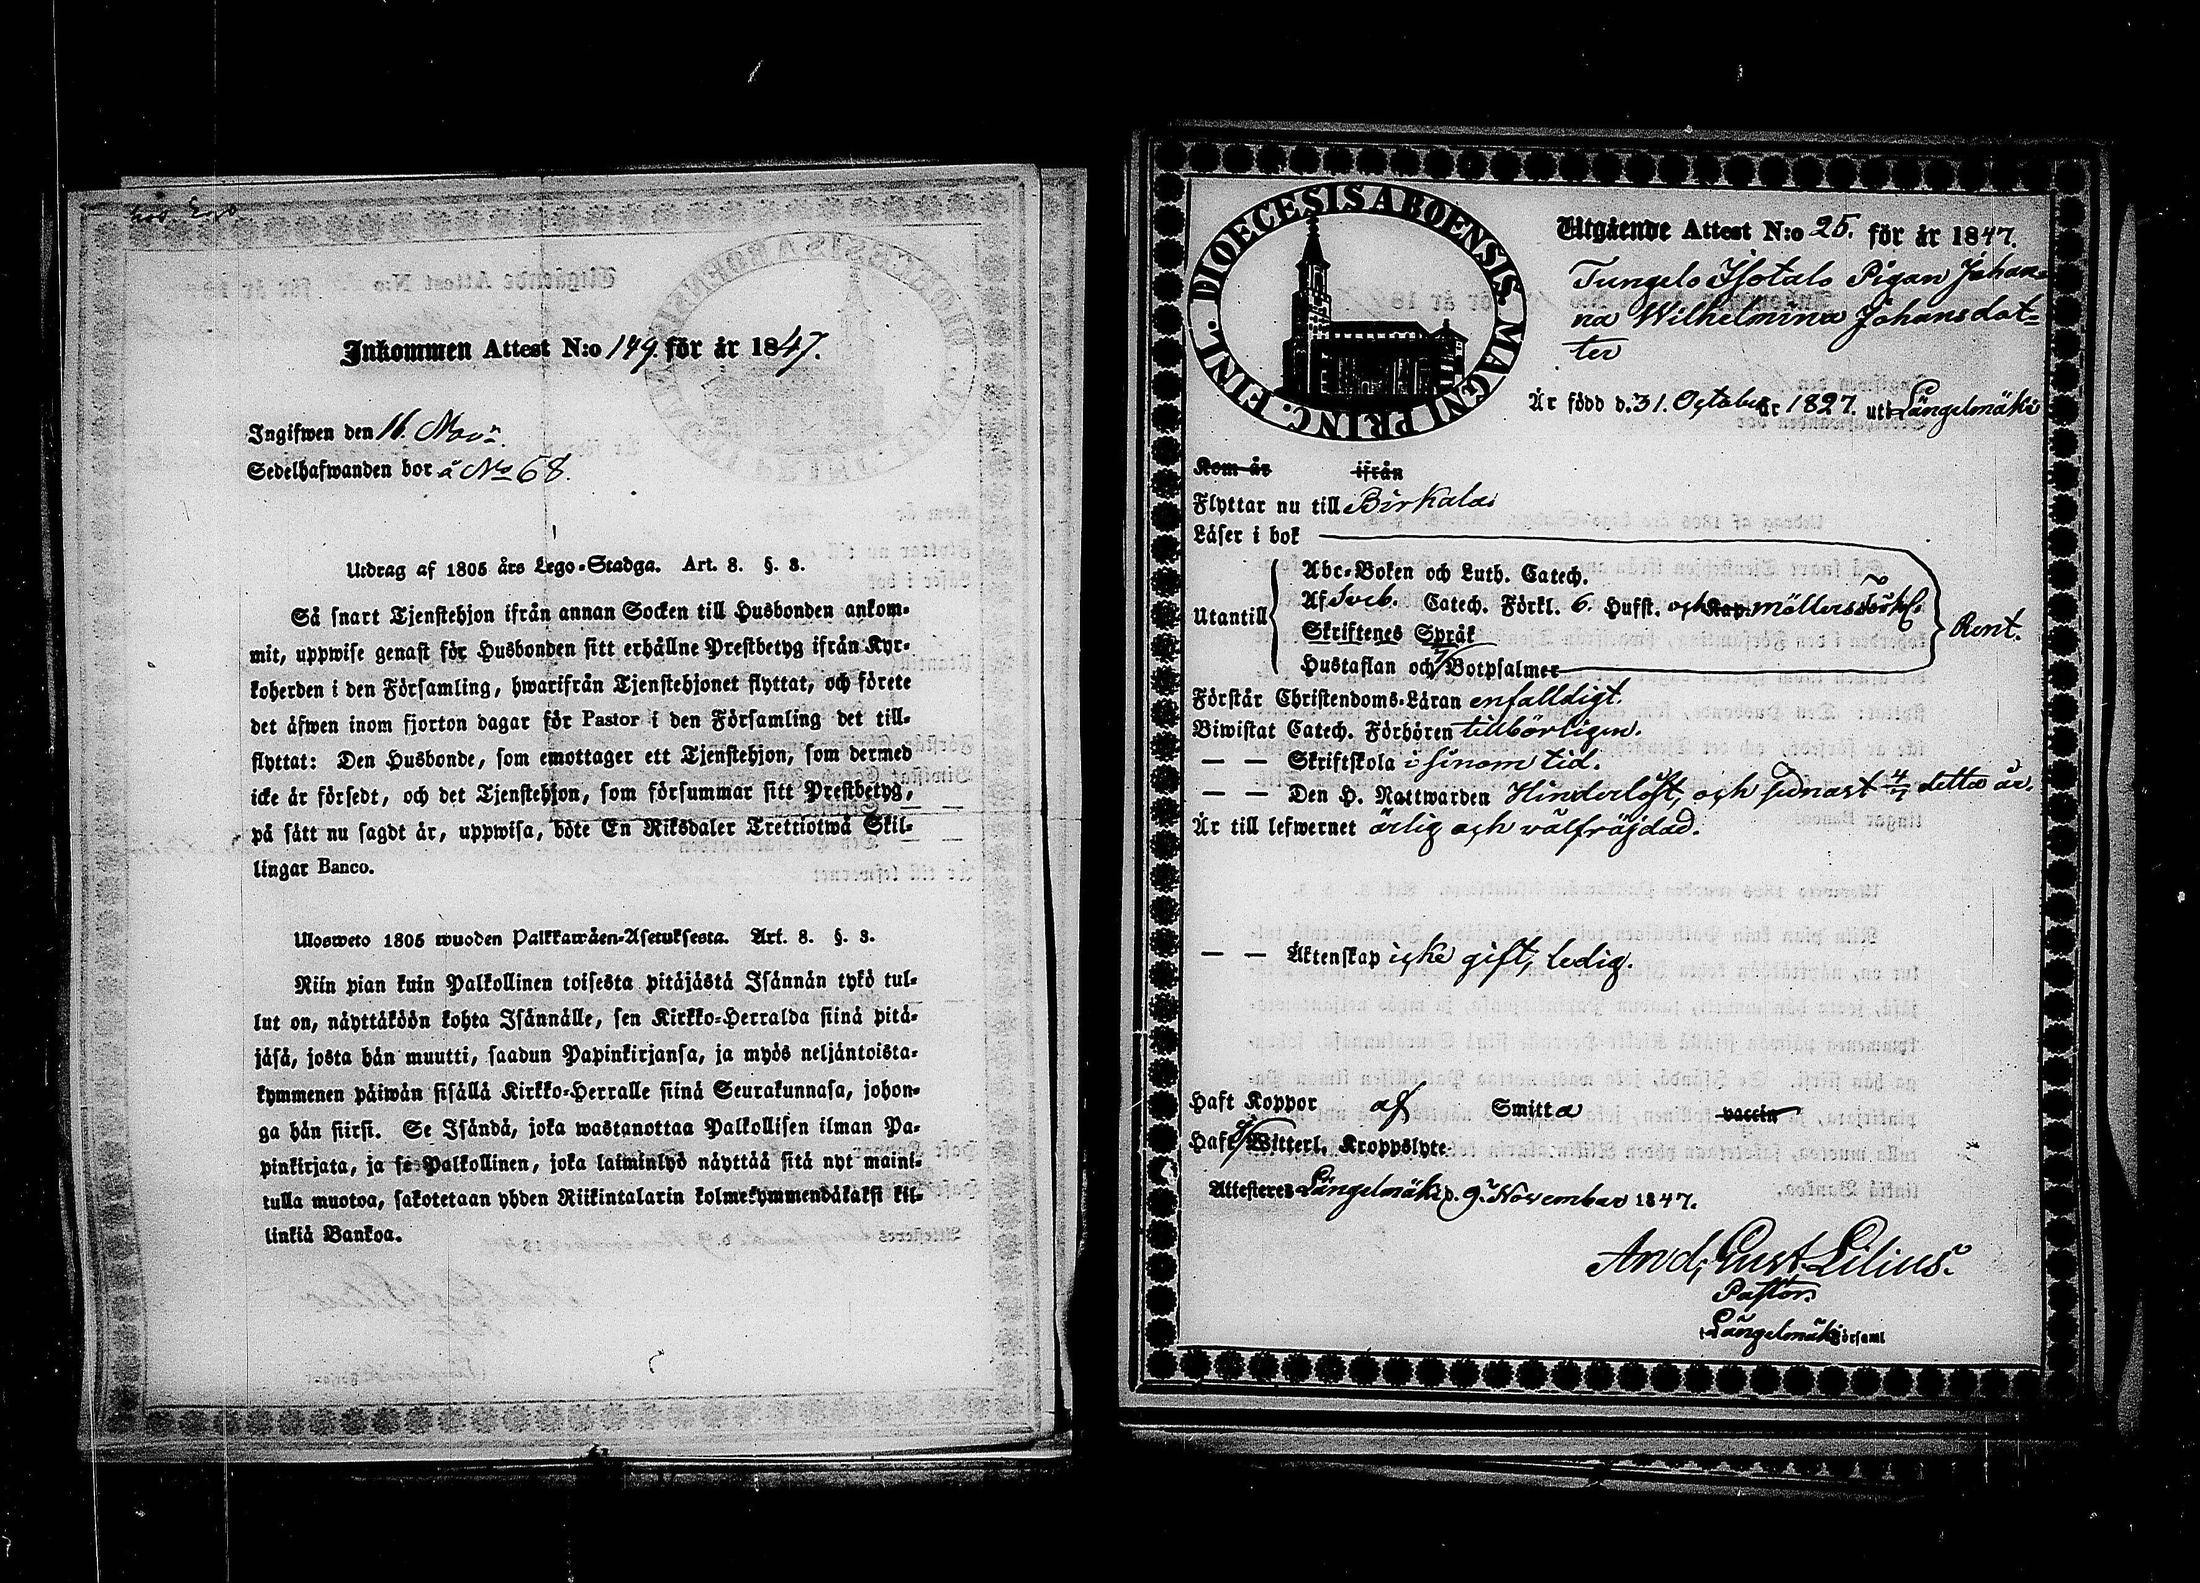 Inkommen Attest N:o 149. för år 1847.
Ingifwen den 16. Nov:
Sedelhafwanden bor å No 68.
Utdrag af 1805 års Lego-Stadga. Art. 8. §. 3.
Så snart Tjenstehjon ifrån annan Socken till Husbonden ankom-
mit, uppwise genast för Husbonden sitt erhållne Prestbetyg ifrån Kyr-
koherden i den Församling, hwarifrån Tjenstehjonet flyttat, och förete
det äfwen inom fjorton dagar för Pastor i den Församling det till-
flyttat: Den Husbonde, som emottager ett Tjenstehjon, som dermed
icke är försedt, och det Tjenstehjon, som försummar sitt Prestbetyg,
på sätt nu sagdt är, uppwisa, böte En Riksdaler Trettiotwå Skil-
lingar Banco.
Ulosweto 1805 wuoden Palkkawäen-Asetuksesta. Art. 8. §. 3.
Niin pian kuin Palkollinen toisesta pitäjästä Isännän tykö tul-
lut on, näyttäköön kohta Isännälle, sen Kirkko-Herralda siinä pitä-
jäsä, josta hän muutti, saadun Papinkirjansa, ja myös neljäntoista-
kymmenen päiwän sisällä Kirkko-Herralle siinä Seurakunnasa, johon-
ga hän siirsi. Se Isändä, joka wastanottaa Palkollisen ilman Pa-
pinkirjata, ja se Palkollinen, joka laiminlyö näyttää sitä nyt maini-
tulla muotoa, sakotetaan yhden Riikintalarin kolmekymmendäkaksi kil-
linkiä Bankoa.
DIOECESIS ABOENSIS. MAGNI PRINC. FINL.
Utgående Attest N:o 25. för år 1847.
Tungelo Isotalo Pigan Johan-
na Wilhelmina Johansdot-
ter
Är född d. 31. October år 1827. uti Längelmäki
Kom år ifrån
Flyttar nu till Birkala
Läser i bok
Abc-Boken och Luth. Catech.
Utantill Af Sveb. Catech. Förkl. 6. Hufst. och Kap. möllers Rent.
Skriftenes Språk
Hustaflan och Botpsalmer
Förstår Christendoms-Läran enfalldigt.
Biwistat Catech. Förhören tillbörligen.
— — Skriftskola i sinom tid.
— — Den H. Nattwarden Hinderlöst, och sednast 4/7 detta år.
Är till lefwernet ärlig och välfräjdad.
— — Äktenskap icke gift, ledig.
Haft Koppor af Smitta vaccin
Haft Witterl. Kroppslyte
Attesteres Längelmäki d. 9. November 1847.
And, Gust. Lilius.
Pastor.
i Längelmäki Församl